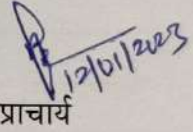 12/01/2023
प्राचार्य